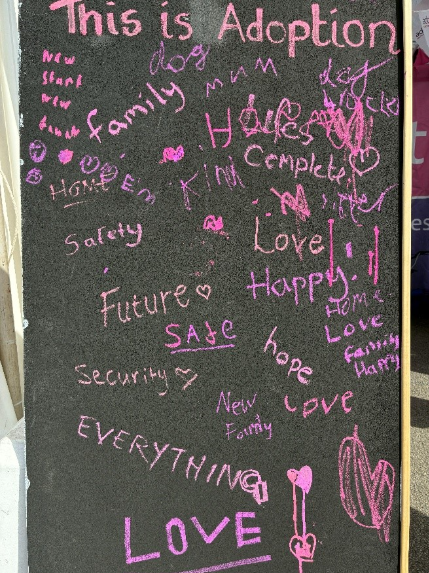 This is Adoption
dog
mum
New
Start
New
family
Complete
Home
Kind
Safety
Love
Happy.
Future
Home
Love
Family
Happy
SAfe
hope
Security
New
Family
Love
EVERYTHING
LOVE